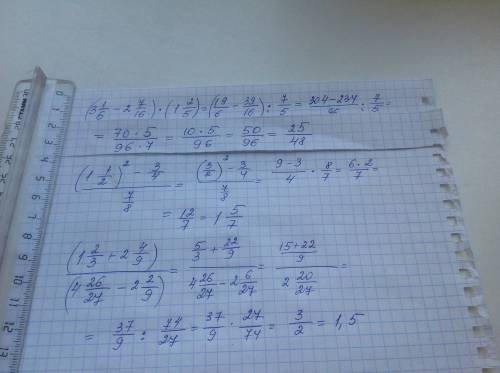 (3 1/6 - 2 7/16) · (1 2/5) = (19/6 - 39/16) : 7/5 = (304-234)/96 : 7/5 =
= (70 · 5)/(96 · 7) = (10 · 5)/96 = 50/96 = 25/48
((1 1/2)² - 3/4)/(7/8) = ((3/2)² - 3/4)/(7/8) = (9-3)/4 · 8/7 = (6·2)/7 =
= 12/7 = 1 5/7
(1 2/3 + 2 4/9)/(4 26/27 - 2 2/9) = (5/3 + 22/9)/(4 26/27 - 2 6/27) = ((15+22)/9)/(2 20/27) =
= 37/9 : 74/27 = 37/9 · 27/74 = 3/2 = 1,5